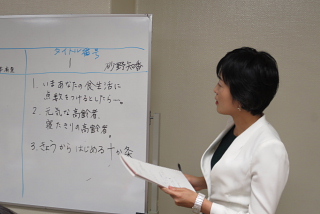 タイトル番号
1
砂野知香
1. いまあなたの食生活に
点数をつけるとしたら…。
2. 元気な高齢者、
寝たきりの高齢者。
3. きょうからはじめる十か条